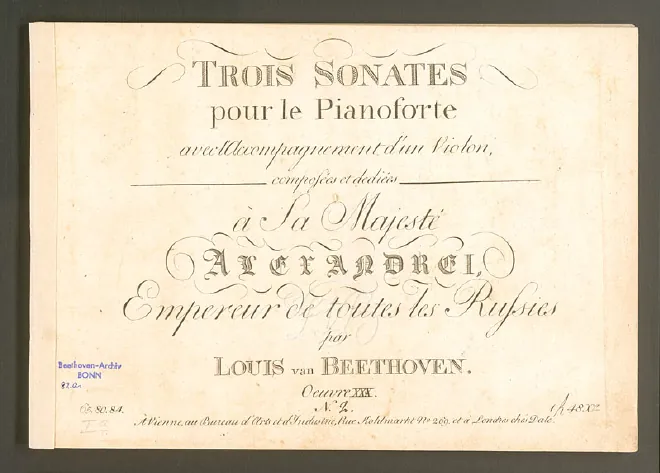 TROIS SONATES
pour le Pianoforte
avec l'Accompagnement d'un Violon,
composées et dediées
à Sa Majesté
ALEXANDRE I.
Empereur de toutes les Russies
par
LOUIS van BEETHOVEN.
Oeuvre XXX.
N. 2.
Beethoven-Archiv
BONN
80. 84.
À Vienne, au Bureau d'Arts et d'Industrie, Rue Kohlmarkt No 269, et à Londres chés Dale.